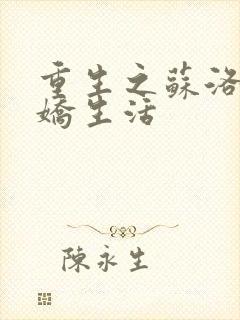 重生之蘇洛
嬌生活
陳永生